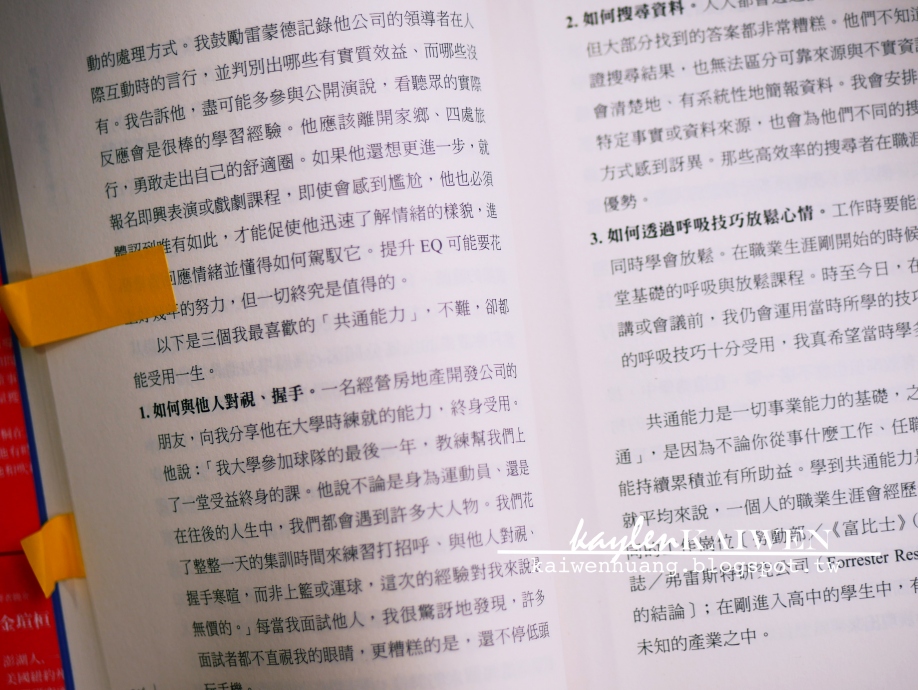 動的處理方式。我鼓勵雷蒙德記錄他公司的領導者在人
際互動時的言行，並判別出哪些有實質效益、而哪些沒
有。我告訴他，盡可能多參與公開演說，看聽眾的實際
反應會是很棒的學習經驗。他應該離開家鄉、四處旅
行，勇敢走出自己的舒適圈。如果他還想更進一步，就
報名即興表演或戲劇課程，即使會感到尷尬，他也必須
體認到唯有如此，才能促使他迅速了解情緒的樣貌，進
回應情緒並懂得如何駕馭它。提升 EQ 可能要花
年的努力，但一切終究是值得的。
以下是三個我最喜歡的「共通能力」，不難，卻都
能受用一生。
1. 如何與他人對視、握手。一名經營房地產開發公司的
朋友，向我分享他在大學時練就的能力，終身受用。
他說：「我大學參加球隊的最後一年，教練幫我們上
了一堂受益終身的課。他說不論是身為運動員、還是
在往後的人生中，我們都會遇到許多大人物。我們花
了整整一天的集訓時間來練習打招呼、與他人對視、
握手寒暄，而非上籃或運球，這次的經驗對我來說是
無價的。」每當我面試他人，我很驚訝地發現，許多
面試者都不直視我的眼睛，更糟糕的是，還不停低頭
玩手機。
2. 如何搜尋資料。人人都會
但大部分找到的答案都非常糟糕。他們不知道
證搜尋結果，也無法區分可靠來源與不實資
會清楚地、有系統性地簡報資料。我會安排
特定事實或資料來源，也會為他們不同的搜
方式感到訝異。那些高效率的搜尋者在職
優勢。
3. 如何透過呼吸技巧放鬆心情。工作時要能
同時學會放鬆。在職業生涯剛開始的時候
堂基礎的呼吸與放鬆課程。時至今日，在
講或會議前，我仍會運用當時所學的技
的呼吸技巧十分受用，我真希望當時學
共通能力是一切事業能力的基礎，之
通」，是因為不論你從事什麼工作、任職
能持續累積並有所助益。學到共通能力
就平均來說，一個人的職業生涯會經歷
同的工作崗位〔勞動部／《富比士》
誌／弗雷斯特研究公司（Forrester Res
的結論〕；在剛進入高中的學生中，有
未知的產業之中。
kaylen KAIWEN
kaiwenhuang.blogspot.tw
金瑄桓
澎湖人、
美國紐約